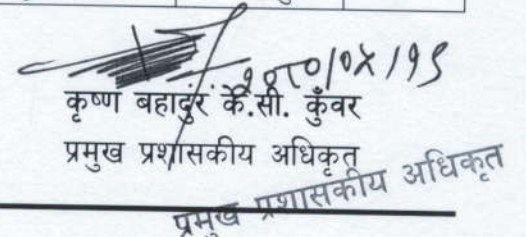 २०८०/०४/१९
कृष्ण बहादुर के.सी. कुँवर
प्रमुख प्रशासकीय अधिकृत
प्रमुख प्रशासकीय अधिकृत